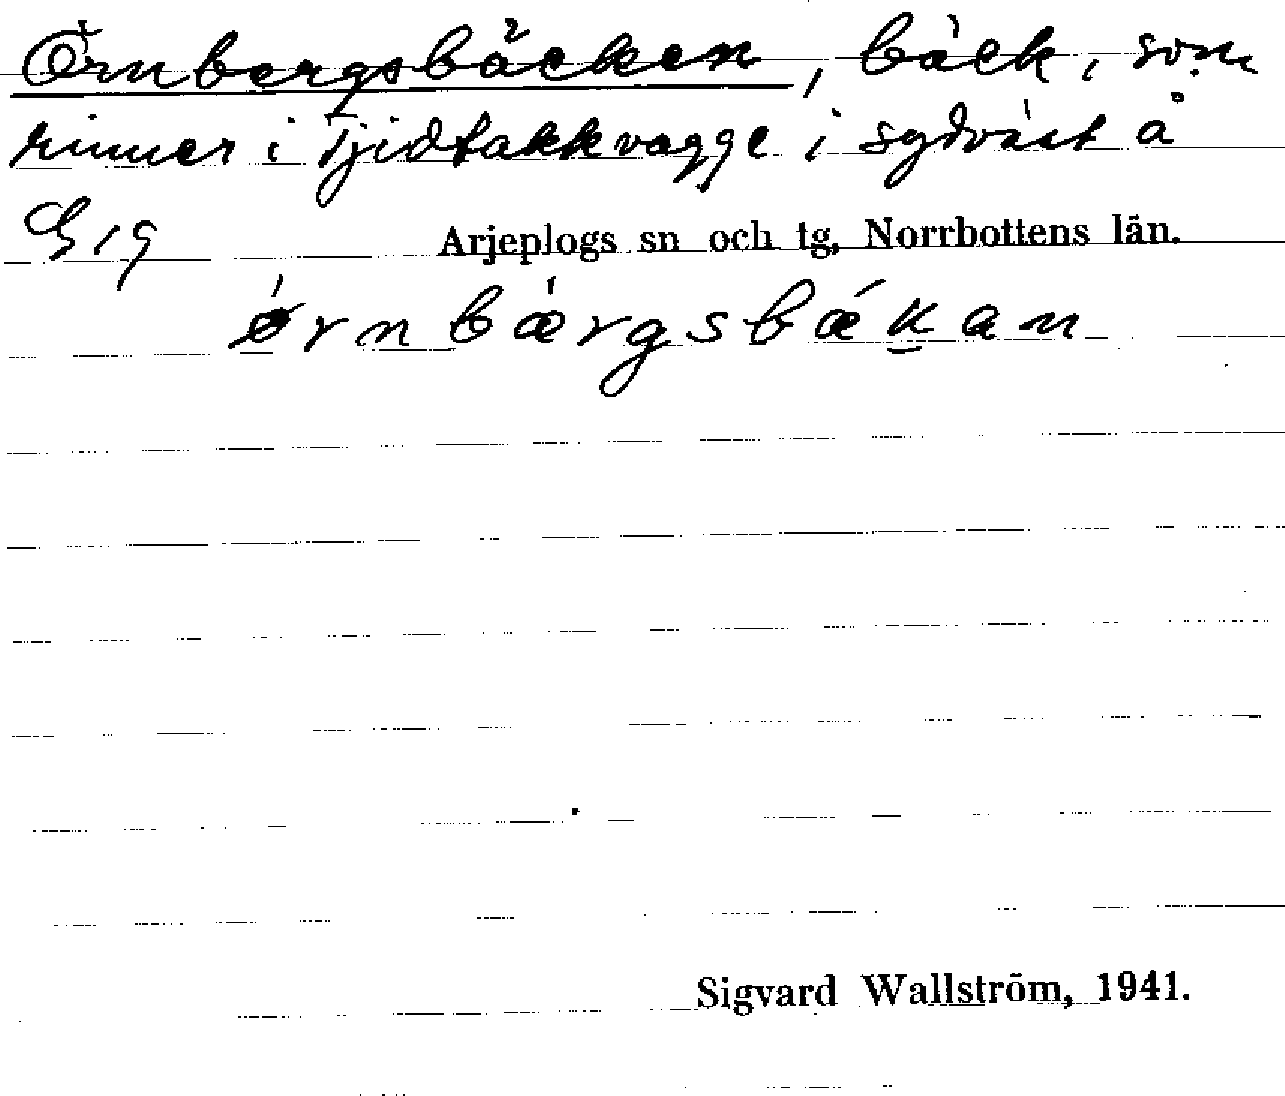 Örnbergsbäcken, bäck, som
rinner i Tjidtakkvagge i sydväst å
G 19
Arjeplogs sn och tg, Norrbottens län.
ǿrnbǽrgsbǽkan
Sigvard Wallström, 1941.